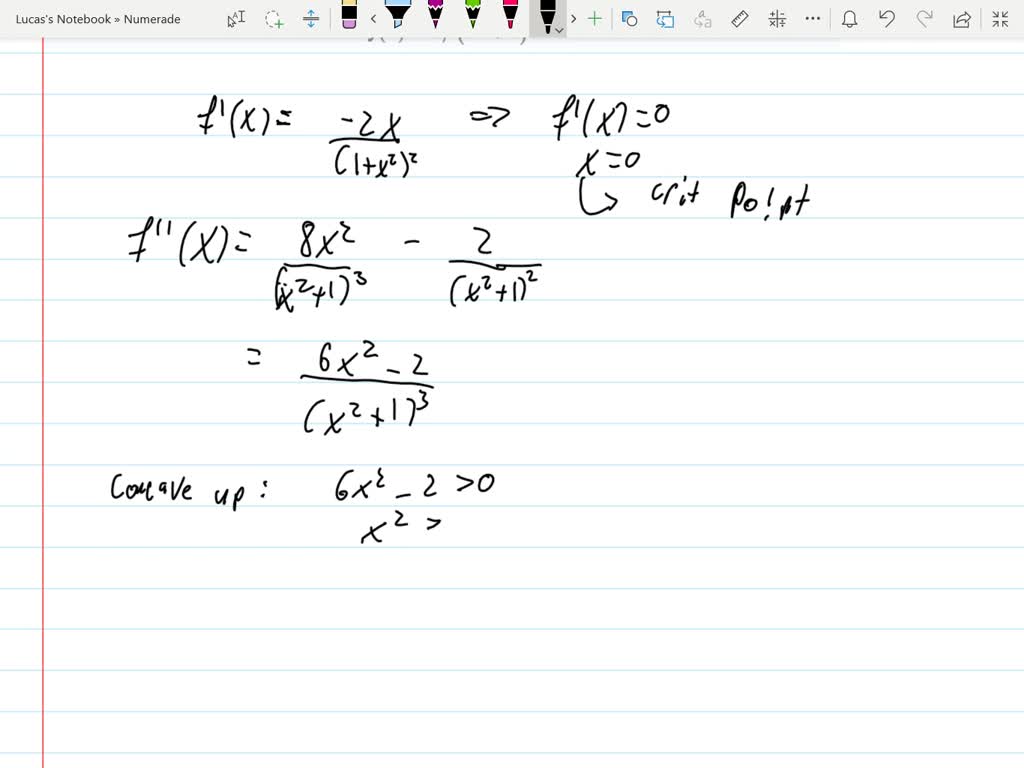 Lucas's Notebook » Numerade
f'(x) = -2x / (1+x²)² => f'(x) = 0
x = 0
↳ crit point
f''(x) = 8x² / (x²+1)³ - 2 / (x²+1)²
= 6x² - 2 / (x²+1)³
Concave up: 6x² - 2 > 0
x² >